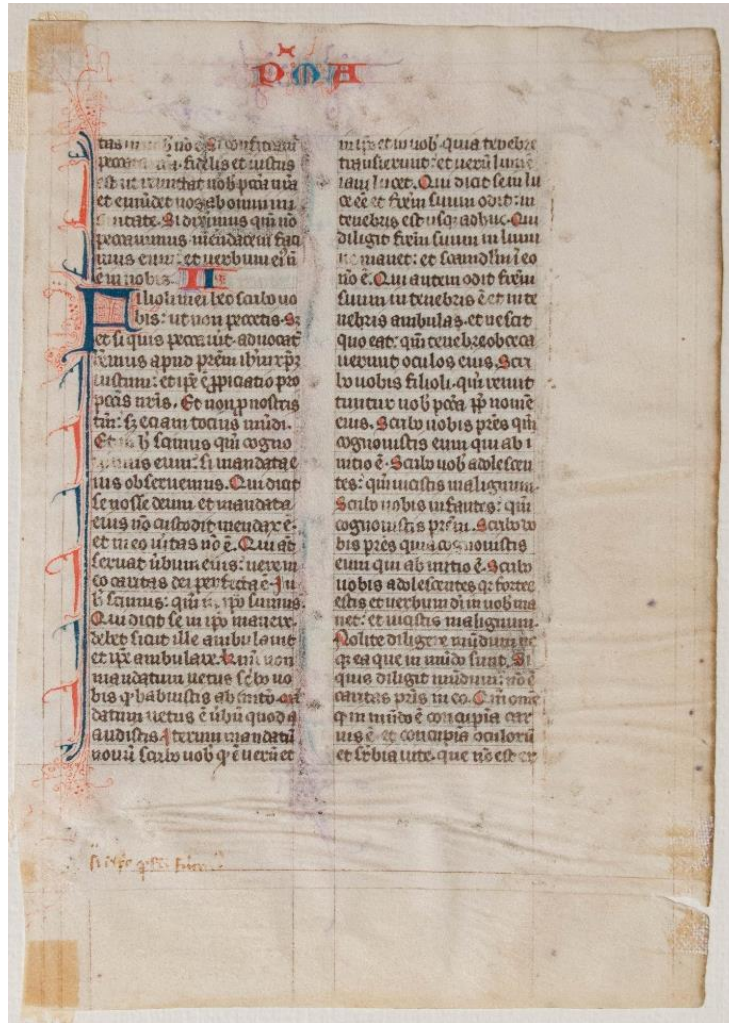 P M A
tas in nob̄ nō ē. Si confiteam̄
peccata nr̄a. fidelis et iustus
est ut remittat nob̄ pccā nr̄a
et emūdet nos ab omni ini
quitate. Si dixerimus qm̄ nō
peccauimus mendacem faci
mus eum: et verbum ei9 nō
ē in nobis. II
Filioli mei hec scribo uo
bis: ut non peccetis. Sꝫ
et si quis peccauit. aduocatū
habemus apud prēm ihm̄ xp̄m
iustum: et ip̄e ē ꝓpiciatio pro
pccīs nr̄is. Et non ꝓ nostris
tm̄: sꝫ eciam tocius mūdi.
Et in h̄ scimus qm̄ cogno
uimus eum: si mandata e
ius obseruemus. Qui dicit
se nosse deum et mandata
eius nō custodit mendax ē:
et in eo uitas nō ē. Qui aūt
seruat ūbum eius: uere in
eo caritas dei perfecta ē. In
h̄ scimus: qm̄ in ip̄o sumus.
Qui dicit se in ip̄o manere.
debet sicut ille ambulauit
et ip̄e ambulare. Kmi non
mandatum uetus scbo uo
bis qd̄ habuistis ab initō. mā
datum uetus ē ūbū quod a
audistis. Iterum mandatū
nouū scribo uob̄ qd̄ ē uerū et
in ip̄o et in uob̄. quia tenebre
transierunt: et uerū lumē
iam lucet. Qui dicit se in lu
ce eē et frēm suum odit: in
tenebris est usqꝫ adhuc. Qui
diligit frēm suum in lumi
ne manet: et scandlm̄ ī eo
nō ē. Qui autem odit frēm
suum in tenebris ē et in te
nebris ambulat. et nescit
quo eat: qm̄ tenebre obceca
uerunt oculos eius. Scri
bo uobis filioli. qm̄ remit
tuntur uob̄ pccā ꝓp̄ nomē
eius. Scribo uobis prēs qm̄
cognouistis eum qui ab i
nitio ē. Scribo uob̄ adolescen
tes: qm̄ uicistis malignum.
Scribo uobis infantes: qm̄
cognouistis prēm. Scribo uo
bis prēs quia cognouistis
eum qui ab initio ē. Scribo
uobis adolescentes qꝫ fortes
estis et uerbum dī in uob̄ ma
net: et uicistis malignum.
Nolite diligere mūdum ne
qꝫ ea que in mūdo sunt. Si
quis diligit mūdum: nō ē
caritas pr̄is in eo. Qm̄ omē
qd̄ in mūdo ē concupīa car
nis ē et concupīa oculorū
et supbia uite. que nō est ex